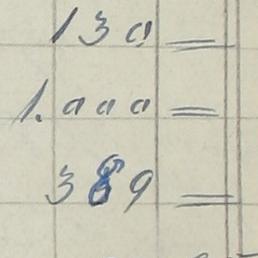 130 =
1.000 =
389 =